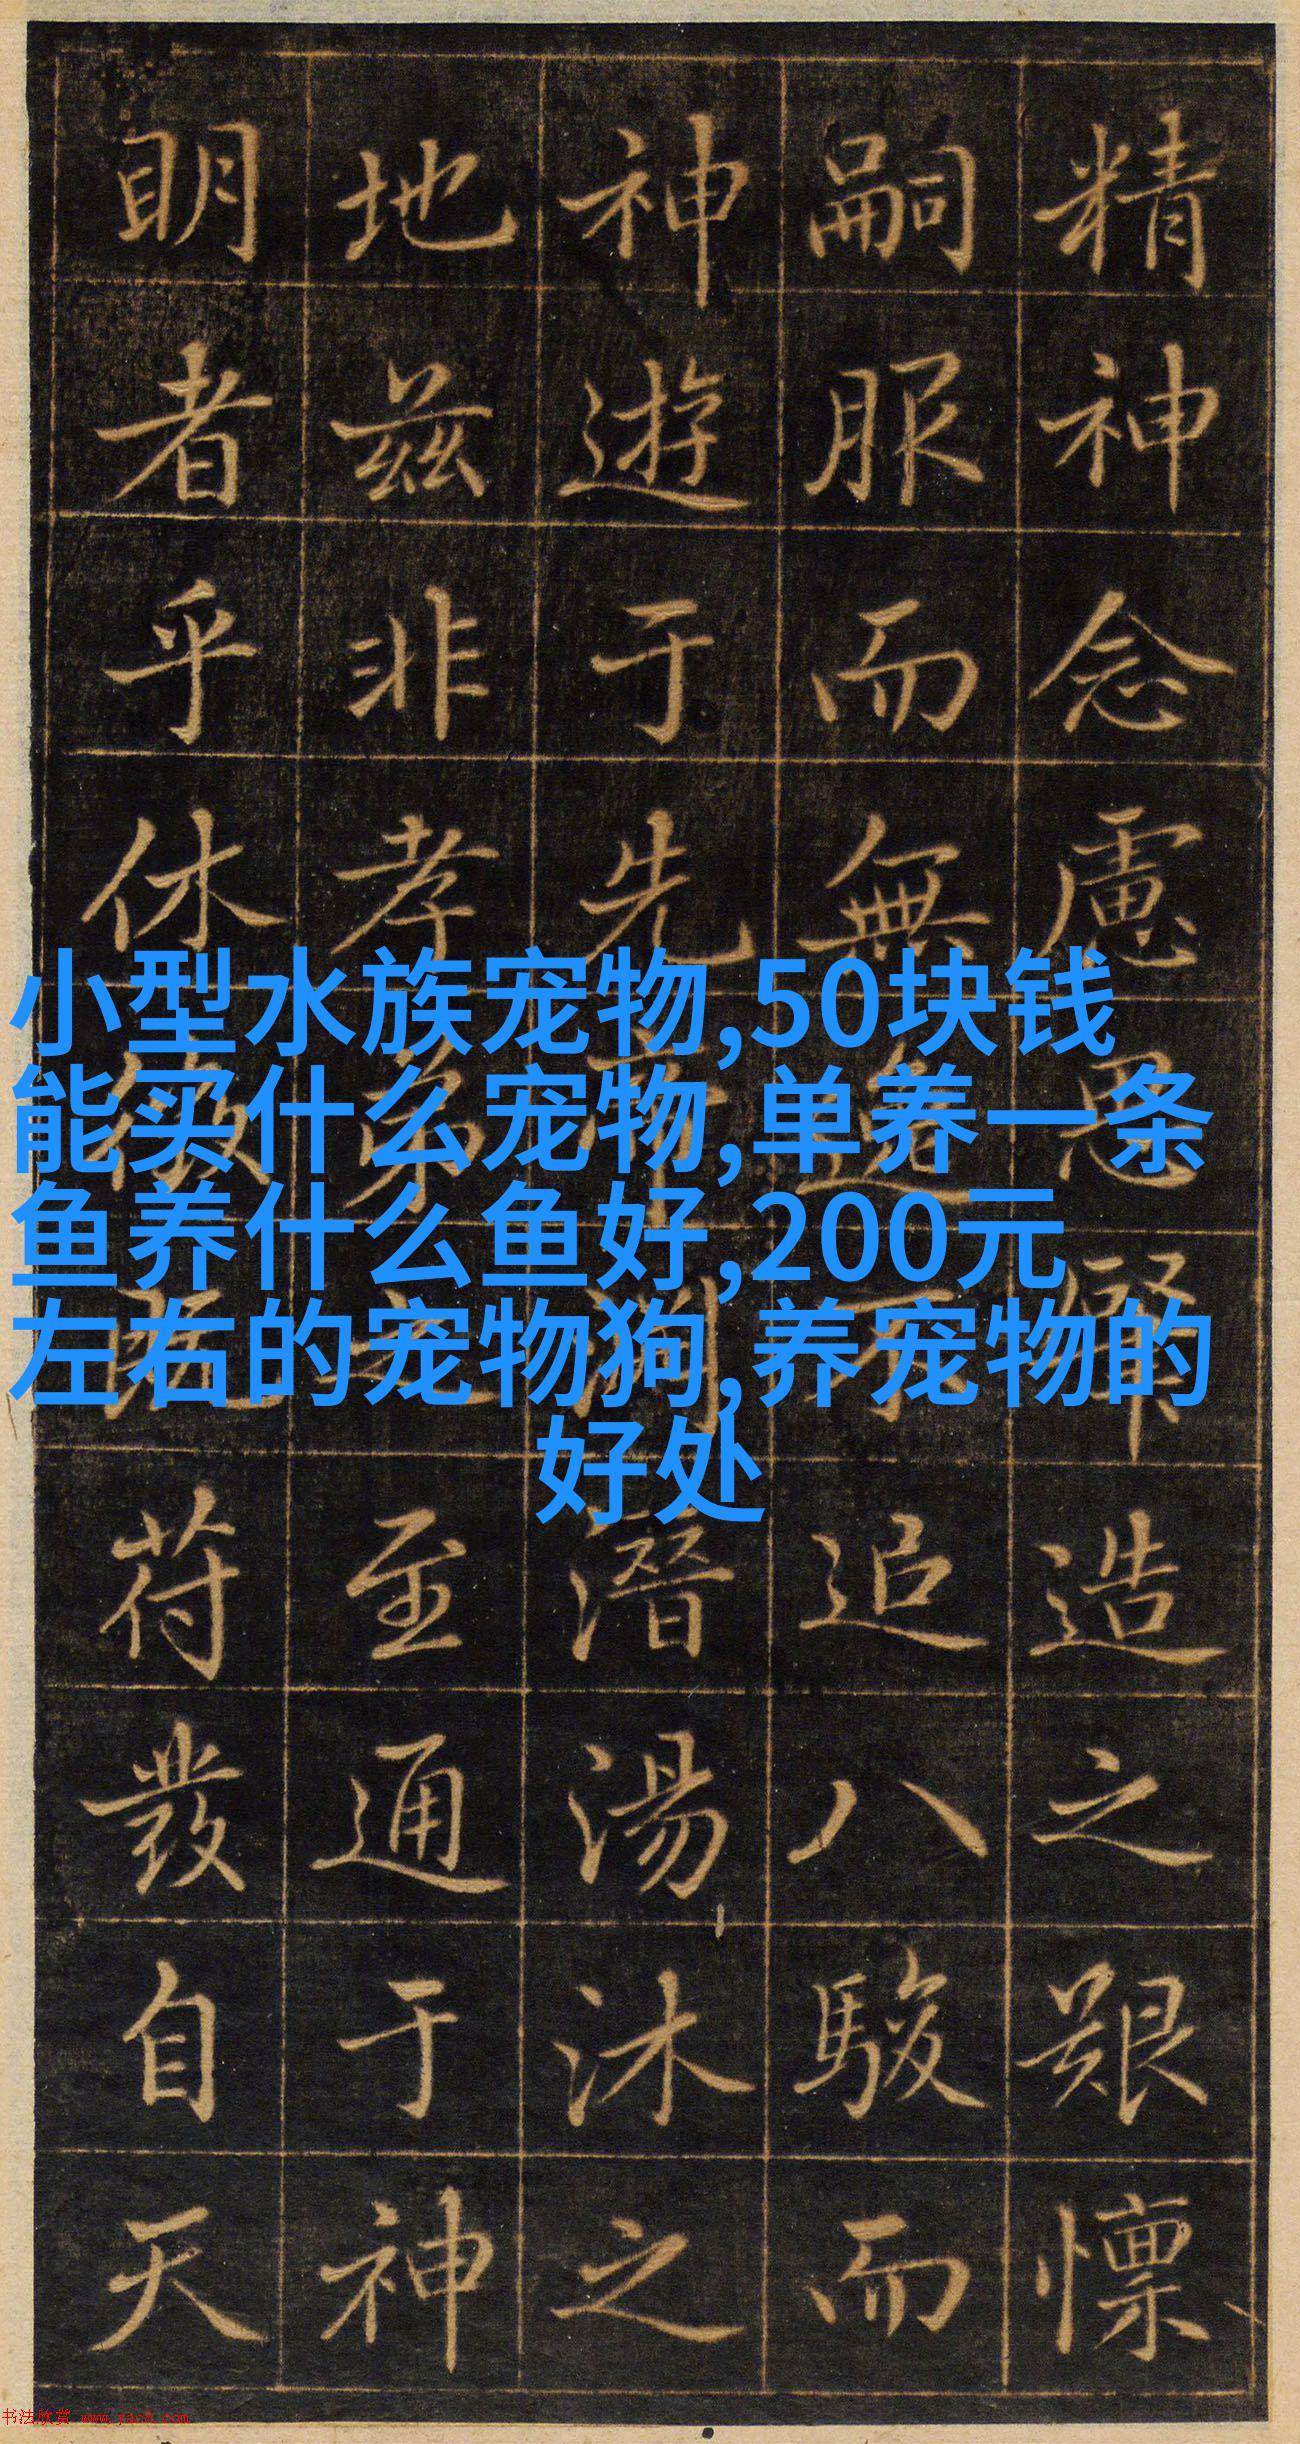 精神念慮思造之艱懍
嗣服而無逸不追八駿而
神遊于先潛湯沐之
地兹非孝弟之至通于神
明者乎休徵既苻發自天
小型水族宠物,50块钱
能买什么宠物,单养一条
鱼养什么鱼好,200元
左右的宠物狗,养宠物的
好处
书法欣赏 www.yac8.com